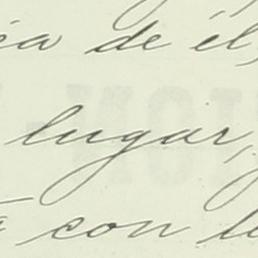 de él,
lugar,
con